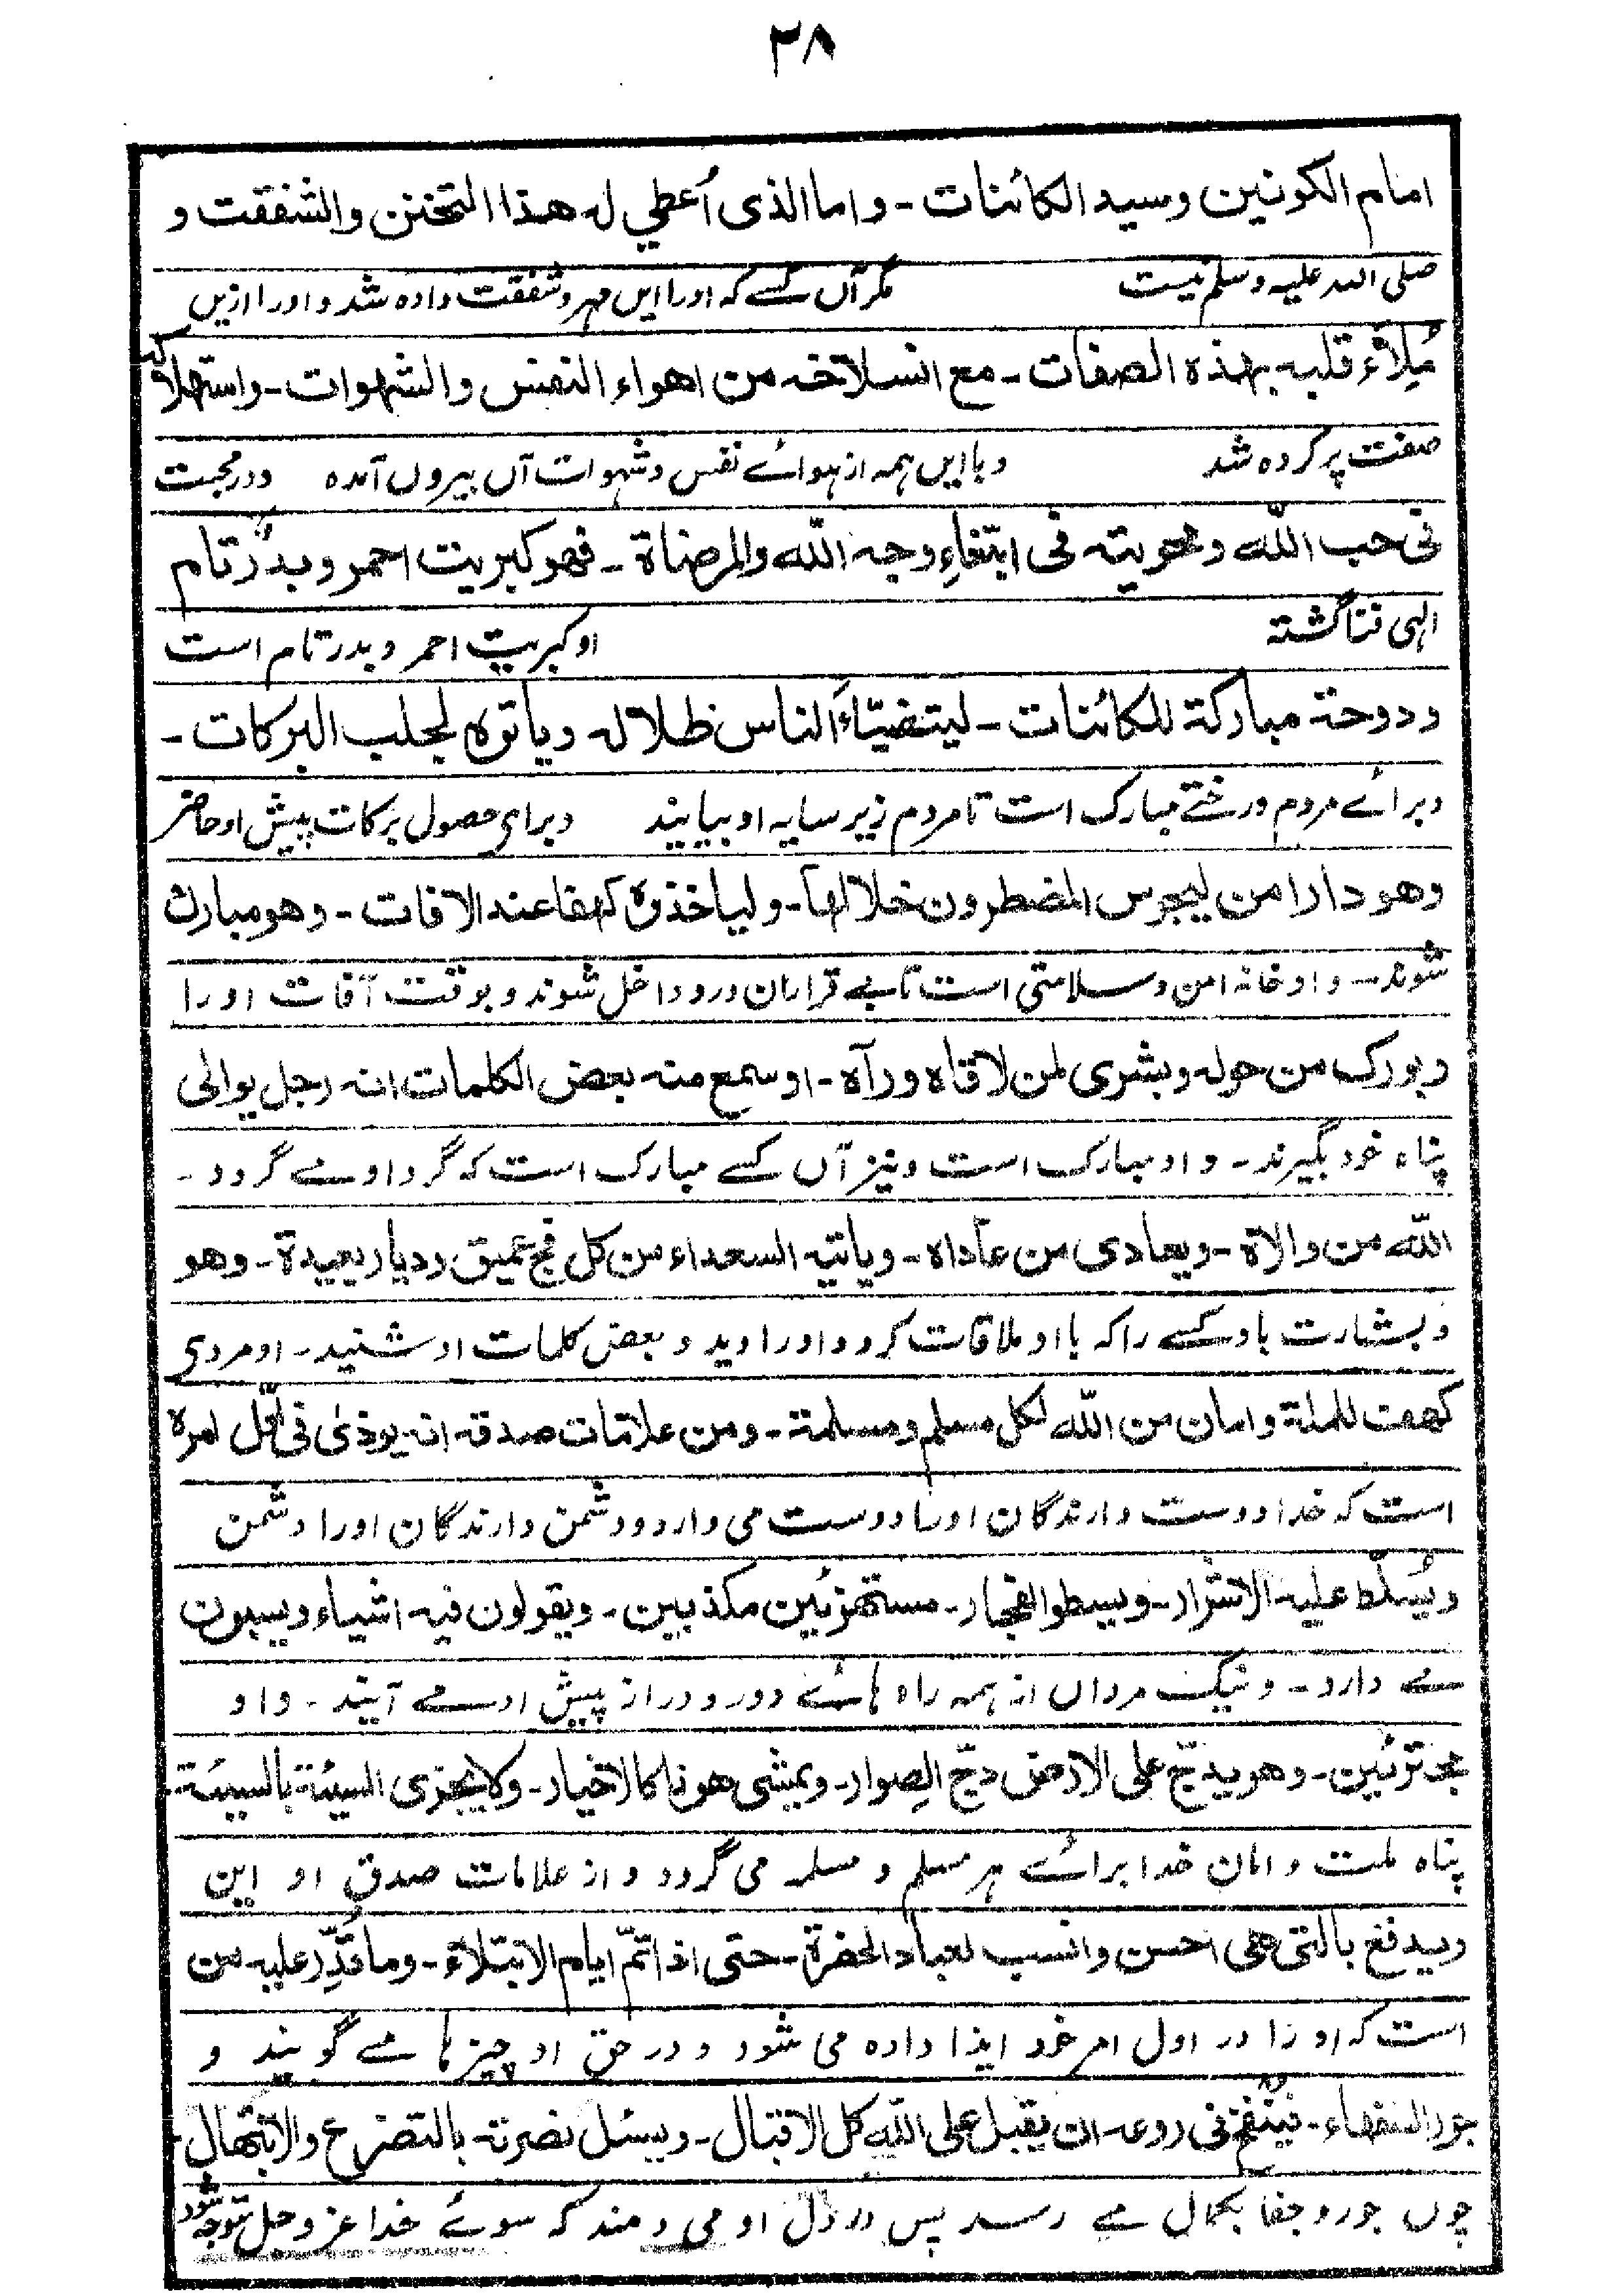 ٢٨
امام الكونين وسيد الكائنات - واما الذى أعطي له هذا التحنن والشفقت و
صلی اللہ علیہ وسلم نیست مگر آں کسے کہ اورا ایں مہر و شفقت داده شد و اورا ازیں
مُلِأَء قلبه بهذه الصفات - مع انسلاخه من اهواء النفس والشهوات - واستهلاكه
صفت پر کرده شد وبا ایں ہمہ از ہوائے نفس وشہوات آں بیروں آمده ودر محبت
فى حب اللّٰه ومحويته فى ابتغاءِ وجه اللّٰه والمرضاة - فهو كبريت احمر وبدرٌ تام
الٰہی فنا گشتہ او کبریت احمر و بدر تام است
ودوحة مباركة للكائنات - ليتفيّأَ الناس ظلاله وياتوه لجلب البركات -
وبرائے مردم درختے مبارک است تا مردم زیر سایہ او بیایند وبرای حصول برکات پیش او حاضر
وهو دارا من ليجوس المضطرون خلالها - ولياخذوه كهفا عند الافات - وهو مبارك
شوند - و او خانہ امن و سلامتی است تا بے قراران درو داخل شوند و بوقت آفات او را
وبورك من حوله وبشرى لمن لاقاه ورآه - او سمع منه بعض الكلمات انه رجل يوالى
پناه خود بگیرند - و او مبارک است و نیز آں کسے مبارک است کہ گرد او مے گردد -
اللّٰه من والاه - ويعادى من عاداه - وياتيه السعداء من كل فج عميق وديار بعيدة - وهو
و بشارت باد کسے را کہ با او ملاقات کرد و اورا دید و بعض کلمات او شنید - او مردی
كهف للملة وامان من اللّٰه لكل مسلم ومسلمة - ومن علامات صدقه انه يوذىٰ فى اوّل امره
است کہ خدا دوست دارندگان اورا دوست می دارد و دشمن دارندگان اورا دشمن
ويُسلّط عليه الاشرار - ويسطو الفجار - مستهزئين مكذبين - ويقولون فيه اشياء ويسبون
مے دارد - و نیک مرداں از ہمہ راه ہائے دور و دراز پیش او مے آیند - و او
مجترئين - وهو يدجّ على الارض دجّ الصِوار - ويمشى هونا كالاخيار - ولا يجزى السيئة بالسيئة
پناه ملت و امان خدا برائے ہر مسلم و مسلمہ می گردد و از علامات صدق او این
ويدفع بالتى هى احسن وانسب لعباد الحضرة - حتى اذا تمّ ايام الابتلاء - وما قُدِّر عليه من
است کہ او را در اول امر خود ایذا داده می شود و در حق او چیز ہا مے گویند و
جور السفهاء - فيُنفخ فى روعه ان يقبل على اللّٰه كل الاقبال - ويسئل نصرته بالتضرع والابتهال
چوں جور و جفا بکمال مے رسد پس در دل او می دمند کہ سوئے خدا عز و جل متوجہ شود